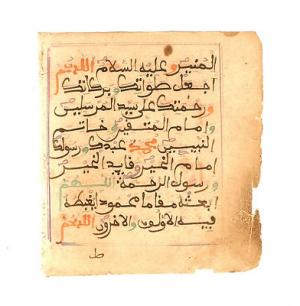 المنير وعليه السلام اللهم
اجعل صلواتك وبركاتك
ورحمتك على سيد المرسلين
وإمام المتقين وخاتم
النبيين محمد عبدك ورسولك
إمام الخير وقايد الخير
ورسول الرحمة اللهم
ابعثه مقاما محمودا يغبطه
فيه الاولون والاخرون اللهم